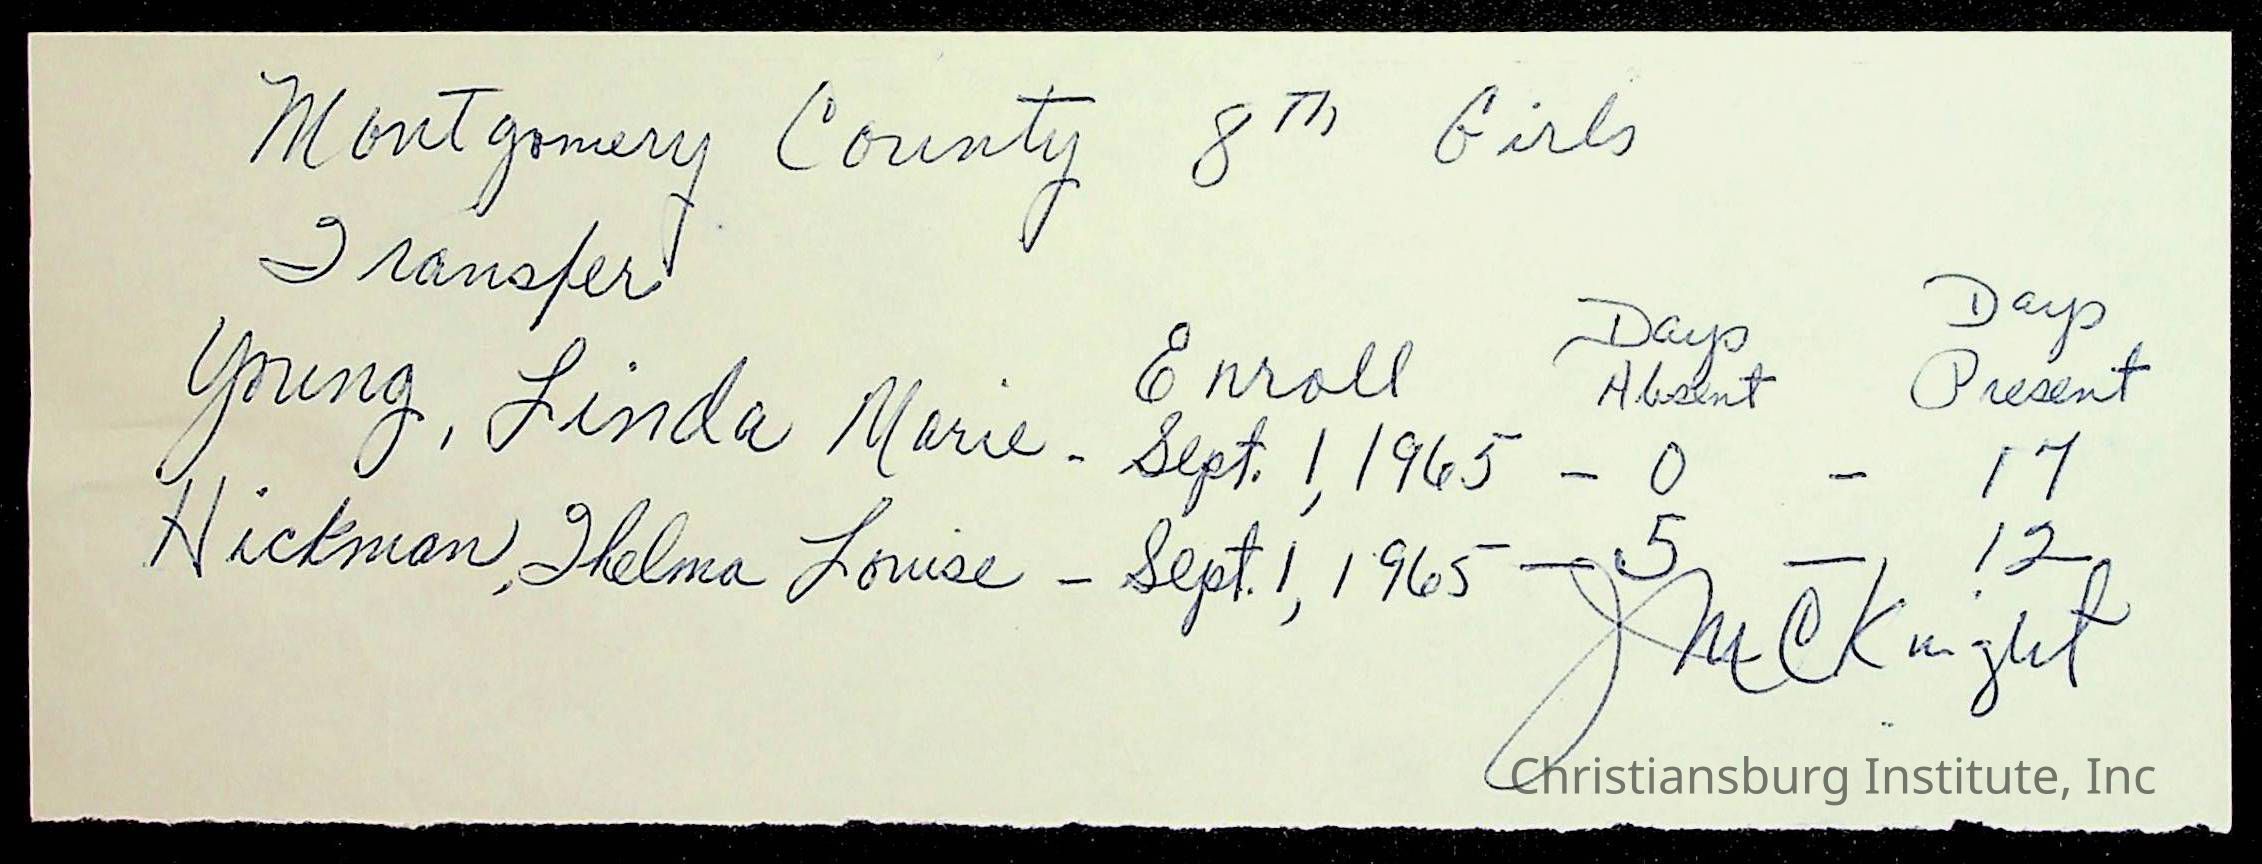 Montgomery County 8th Girls
Transfer
Enroll Days Absent Days Present
Young, Linda Marie - Sept. 1, 1965 - 0 - 17
Hickman, Thelma Louise - Sept. 1, 1965 - 5 - 12
J McKnight
Christiansburg Institute, Inc